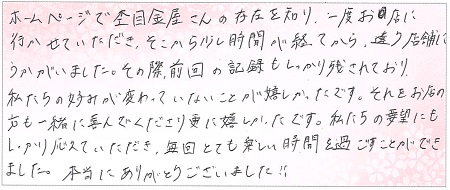 ホームページで杢目金屋さんの存在を知り、一度お店に
行かせていただき、そこから少し時間が経ってから、違う店舗に
うかがいました。その際、前回の記録もしっかり残されており
私たちの好みが変わっていないことが嬉しかったです。それをお店の
方も一緒に喜んでくださり更に嬉しかったです。私たちの要望にも
しっかり応えていただき、毎回とても楽しい時間を過ごすことができ
ました。本当にありがとうございました!!